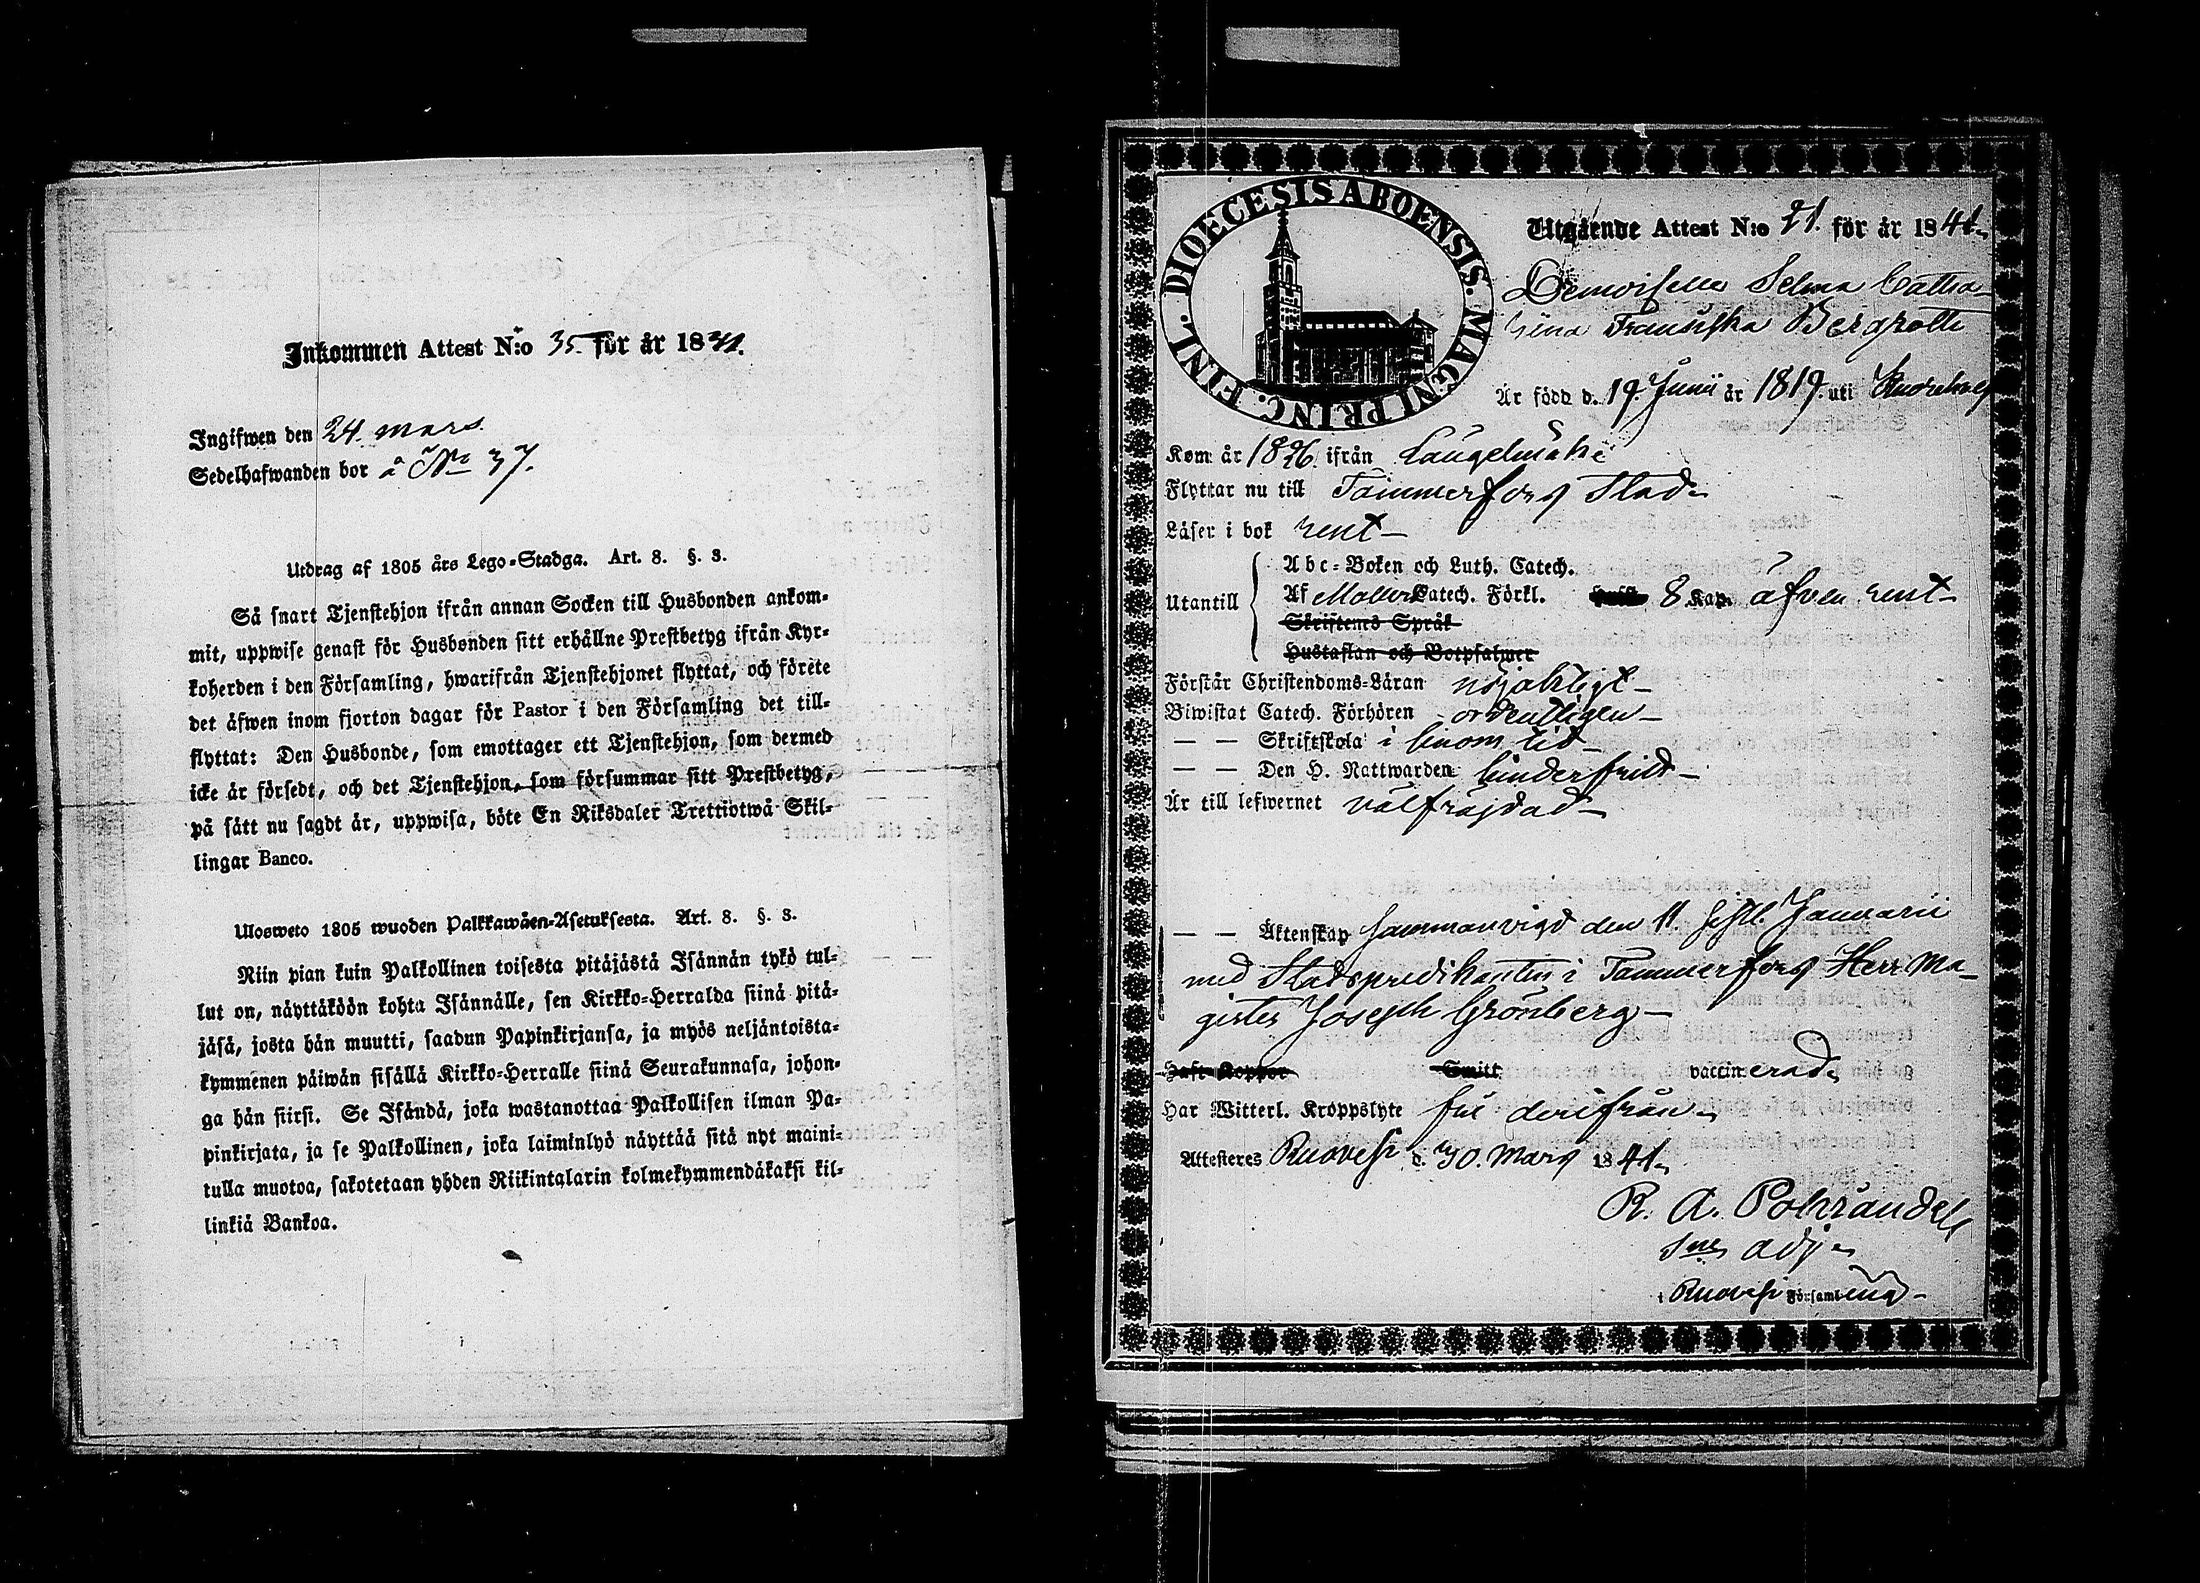 Inkommen Attest N:o 35. för år 1841.
Ingifwen den 24. mars.
Sedelhafwanden bor å No 37.
Utdrag af 1805 års Lego-Stadga. Art. 8. §. 3.
Så snart Tjenstehjon ifrån annan Socken till Husbonden ankom-
mit, uppwise genast för Husbonden sitt erhållne Prestbetyg ifrån Kyr-
koherden i den Församling, hwarifrån Tjenstehjonet flyttat, och förete
det äfwen inom fjorton dagar för Pastor i den Församling det till-
flyttat: Den Husbonde, som emottager ett Tjenstehjon, som dermed
icke är försedt, och det Tjenstehjon, som försummar sitt Prestbetyg,
på sätt nu sagdt är, uppwisa, böte En Riksdaler Trettiotwå Skil-
lingar Banco.
Ulosweto 1805 wuoden Palkkawäen-Asetuksesta. Art. 8. §. 3.
Niin pian kuin Palkollinen toisesta pitäjästä Isännän tykö tul-
lut on, näyttäköön kohta Isännälle, sen Kirkko-Herralda siinä pitä-
jäsä, josta hän muutti, saadun Papinkirjansa, ja myös neljäntoista-
kymmenen päiwän sisällä Kirkko-Herralle siinä Seurakunnasa, johon-
ga hän siirsi. Se Isändä, joka wastanottaa Palkollisen ilman Pa-
pinkirjata, ja se Palkollinen, joka laiminlyö näyttää sitä nyt maini-
tulla muotoa, sakotetaan yhden Riikintalarin kolmekymmendäkaksi kil-
linkiä Bankoa.
DIOECESIS ABOENSIS. MAGNI PRINC. FINL.
Utgående Attest N:o 21. för år 1841.
Demoiselle Selma Catha-
rina Fransiska Bergroth
Är född d. 19. Junii år 1819. uti Kuorehwesi
Kom år 1826. ifrån Längelmäki
Flyttar nu till Tammerfors Stad.
Läser i bok rent
Utantill
Abc-Boken och Luth. Catech.
Af Möllers Catech. Förkl. 8 Kap. äfven rent
Skriftens Språk
Hustaflan och Botpsalmer
Förstår Christendoms-Läran nöjaktigt
Biwistat Catech. Förhören ordentligen
— — Skriftskola i sinom tid
— — Den H. Nattwarden hinderfritt
Är till lefwernet välfräjdad
— — Äktenskap sammanvigd den 11. sistl. Januarii
med Stadspredikanten i Tammerfors Herr Ma-
gister Joseph Grönberg
Haft Koppor Smitt vaccinerad.
Har Witterl. Kroppslyte fri derifrån.
Attesteres Ruovesi d. 20. Mars 1841.
R. A. Polviander
Adj.
i Ruovesi Församling